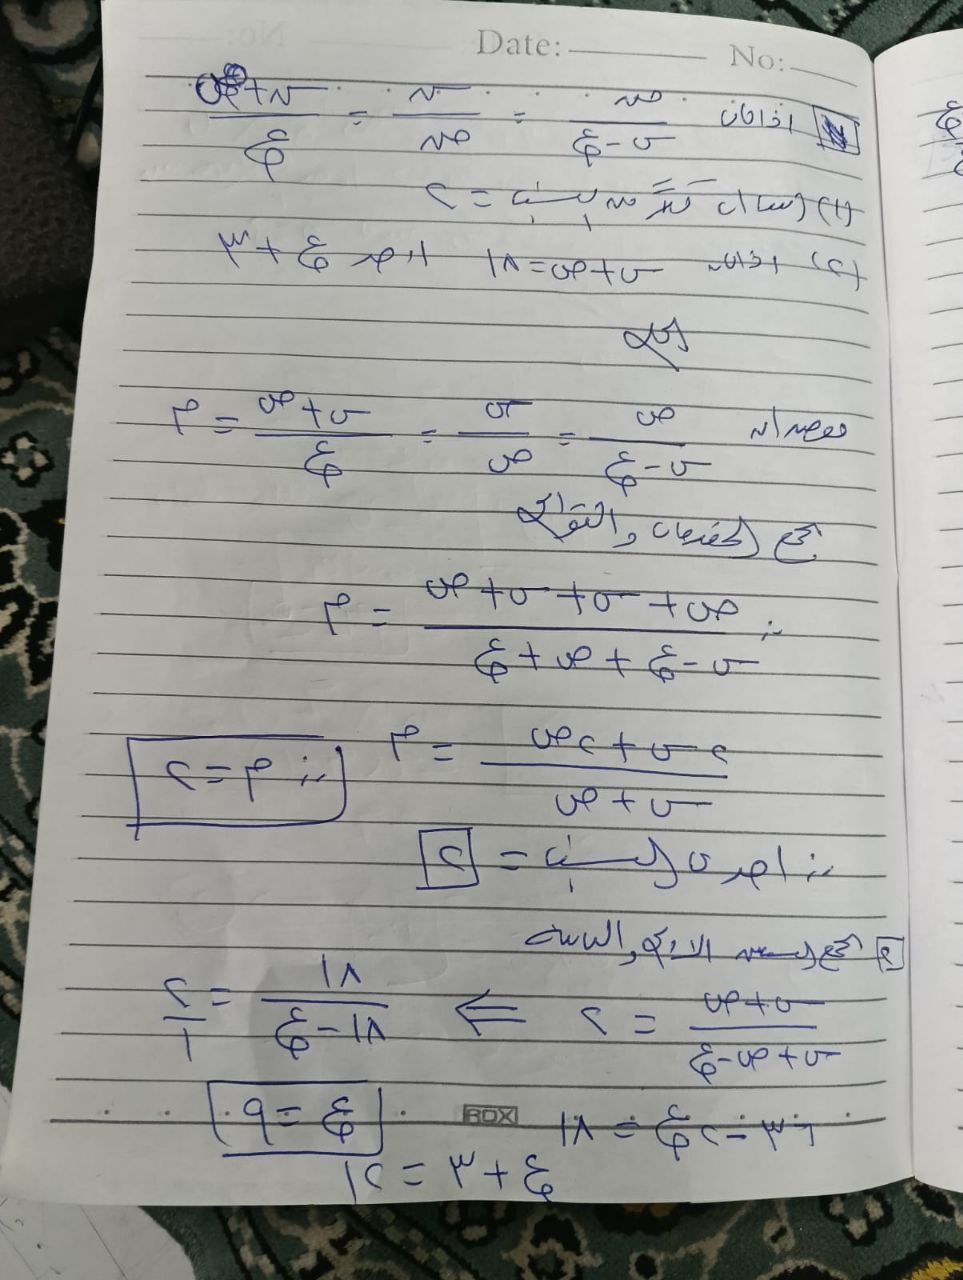 Date: No:
اذا كان ص/(س-ع) = س/ص = (س+ص)/ع
(١) اثبت ان كل نسبة = ٢
(٢) اذا كان س+ص=١٨ اوجد ع+٣
الحل
ص/(س-ع) = س/ص = (س+ص)/ع = م
بجمع المقدمات والتوالى
∴ (ص+س+س+ص)/(س-ع+ص+ع) = م
(٢س+٢ص)/(س+ص) = م ∴ م=٢
∴ احدى النسب = ٢
٢ بجمع النسبتين الاولى والثانية
(س+ص)/(س+ص-ع) = ٢ ⇐ ١٨/(١٨-ع) = ٢/١
٣٦-٢ع=١٨ ع=٩
BOX
ع+٣=١٢